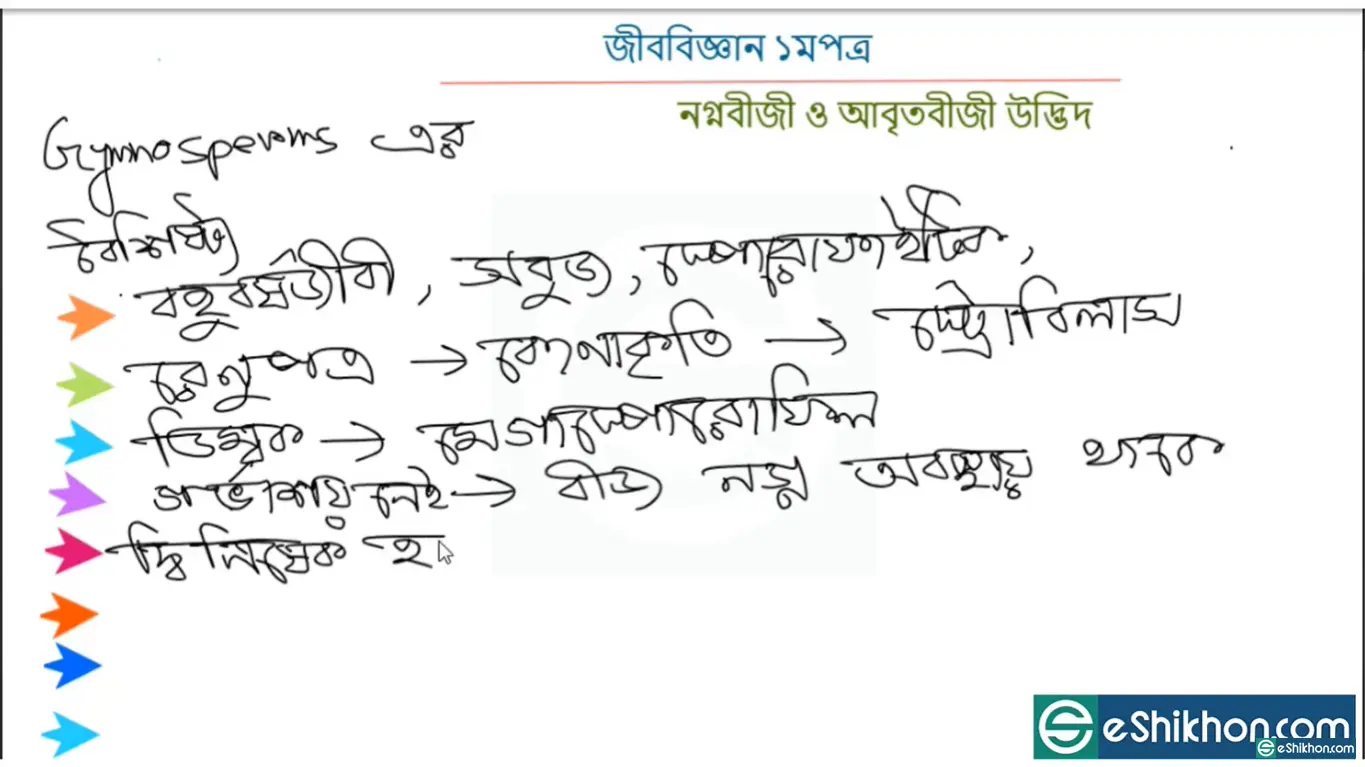 জীববিজ্ঞান ১মপত্র
নগ্নবীজী ও আবৃতবীজী উদ্ভিদ
Gymnosperms এর
বৈশিষ্ট্য
বহুবর্ষজীবী, সবুজ, স্পোরোফাইটিক,
রেণুপত্র → কোণাকৃতি → স্ট্রোবিলাস
ডিম্বক → মেগাস্পোরোফিল
গর্ভাশয় নেই → বীজ নগ্ন অবস্থায় থাকে
দ্বি নিষেক হ
eShikhon.com
eShikhon.com